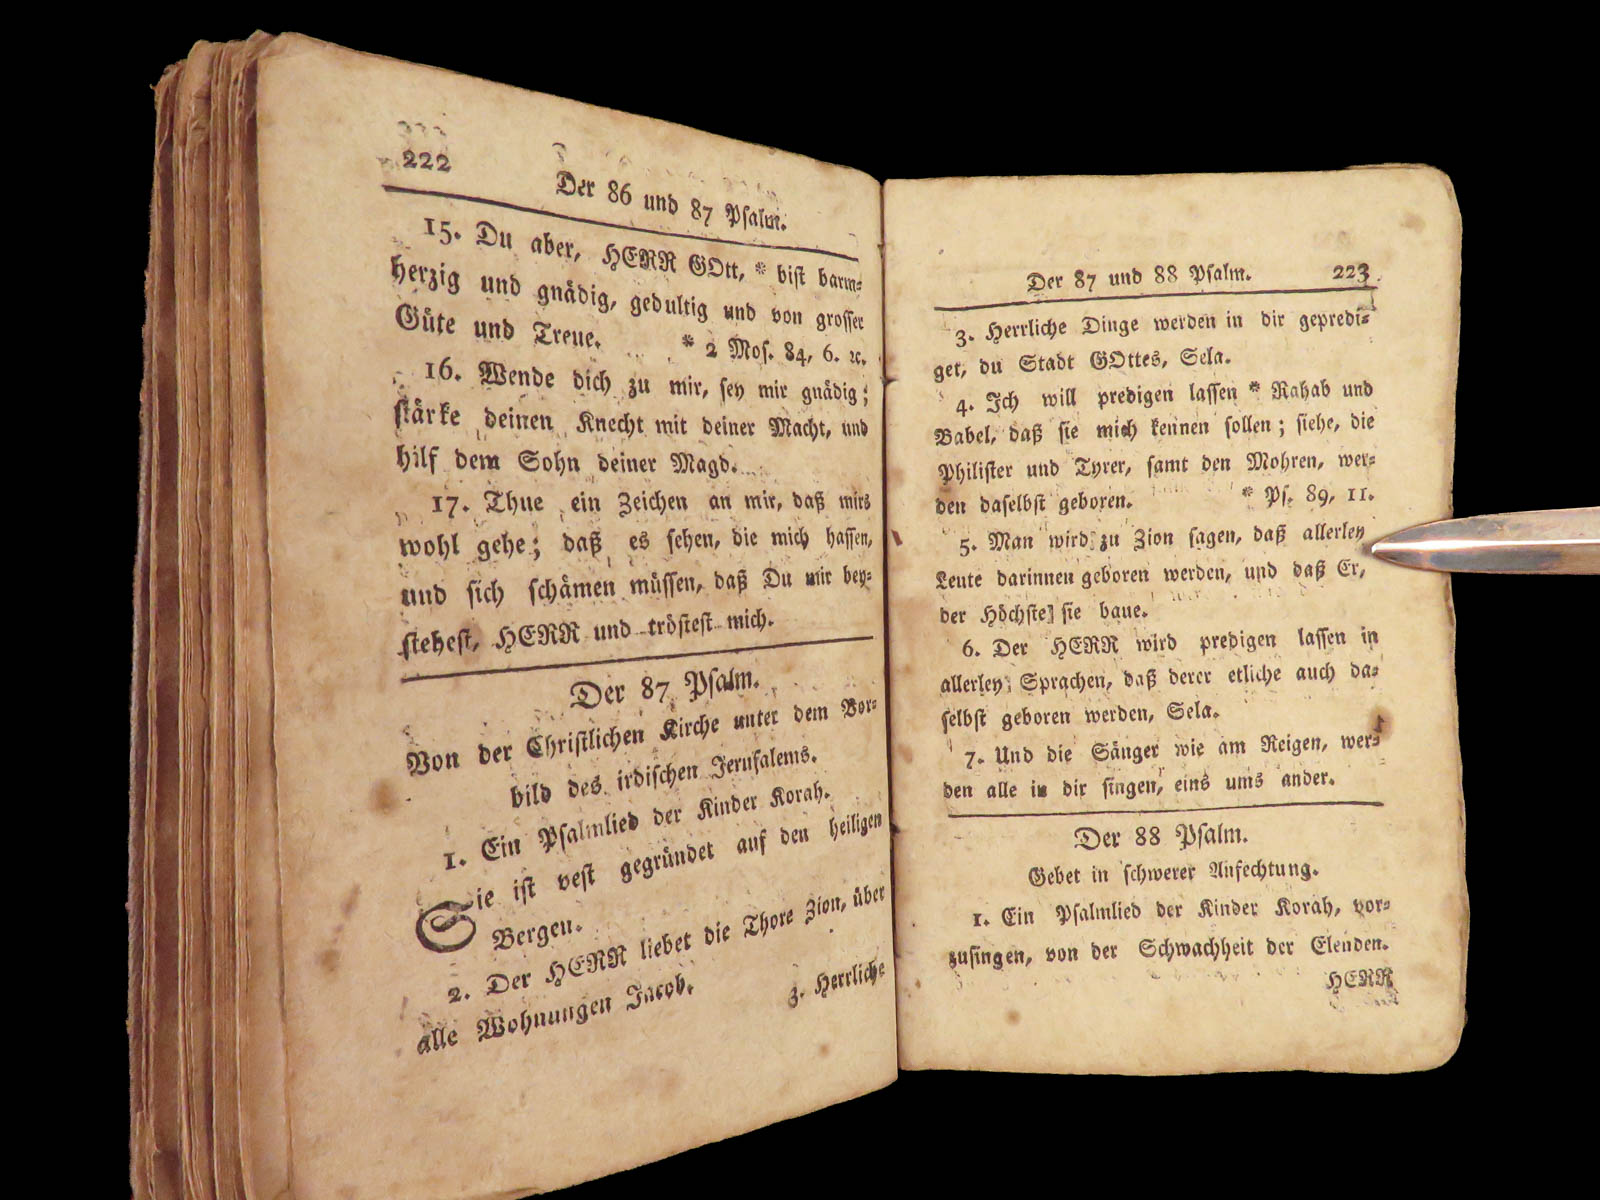 222
Der 86 und 87 Psalm.
15. Du aber, HERR GOtt, * bist barm=
herzig und gnädig, gedultig und von grosser
Güte und Treue. * 2 Mos. 84, 6. ꝛc.
16. Wende dich zu mir, sey mir gnädig;
stärke deinen Knecht mit deiner Macht, und
hilf dem Sohn deiner Magd.
17. Thue ein Zeichen an mir, daß mirs
wohl gehe; daß es sehen, die mich hassen,
und sich schämen müssen, daß Du mir bey=
stehest, HERR und tröstest mich.
Der 87 Psalm.
Von der Christlichen Kirche unter dem Vor=
bild des irdischen Jerusalems.
1. Ein Psalmlied der Kinder Korah.
Sie ist vest gegründet auf den heiligen
Bergen.
2. Der HERR liebet die Thore Zion, über
alle Wohnungen Jacob.
3. Herrliche
Der 87 und 88 Psalm. 223
3. Herrliche Dinge werden in dir gepredi=
get, du Stadt GOttes, Sela.
4. Ich will predigen lassen * Rahab und
Babel, daß sie mich kennen sollen; siehe, die
Philister und Tyrer, samt den Mohren, wer=
den daselbst geboren. * Ps. 89, 11.
5. Man wird zu Zion sagen, daß allerley
Leute darinnen geboren werden, und daß Er,
der Höchste, sie baue.
6. Der HERR wird predigen lassen in
allerley Sprachen, daß derer etliche auch da=
selbst geboren werden, Sela.
7. Und die Sänger wie am Reigen, wer=
den alle in dir singen, eins ums ander.
Der 88 Psalm.
Gebet in schwerer Anfechtung.
1. Ein Psalmlied der Kinder Korah, vor=
zusingen, von der Schwachheit der Elenden.
HERR